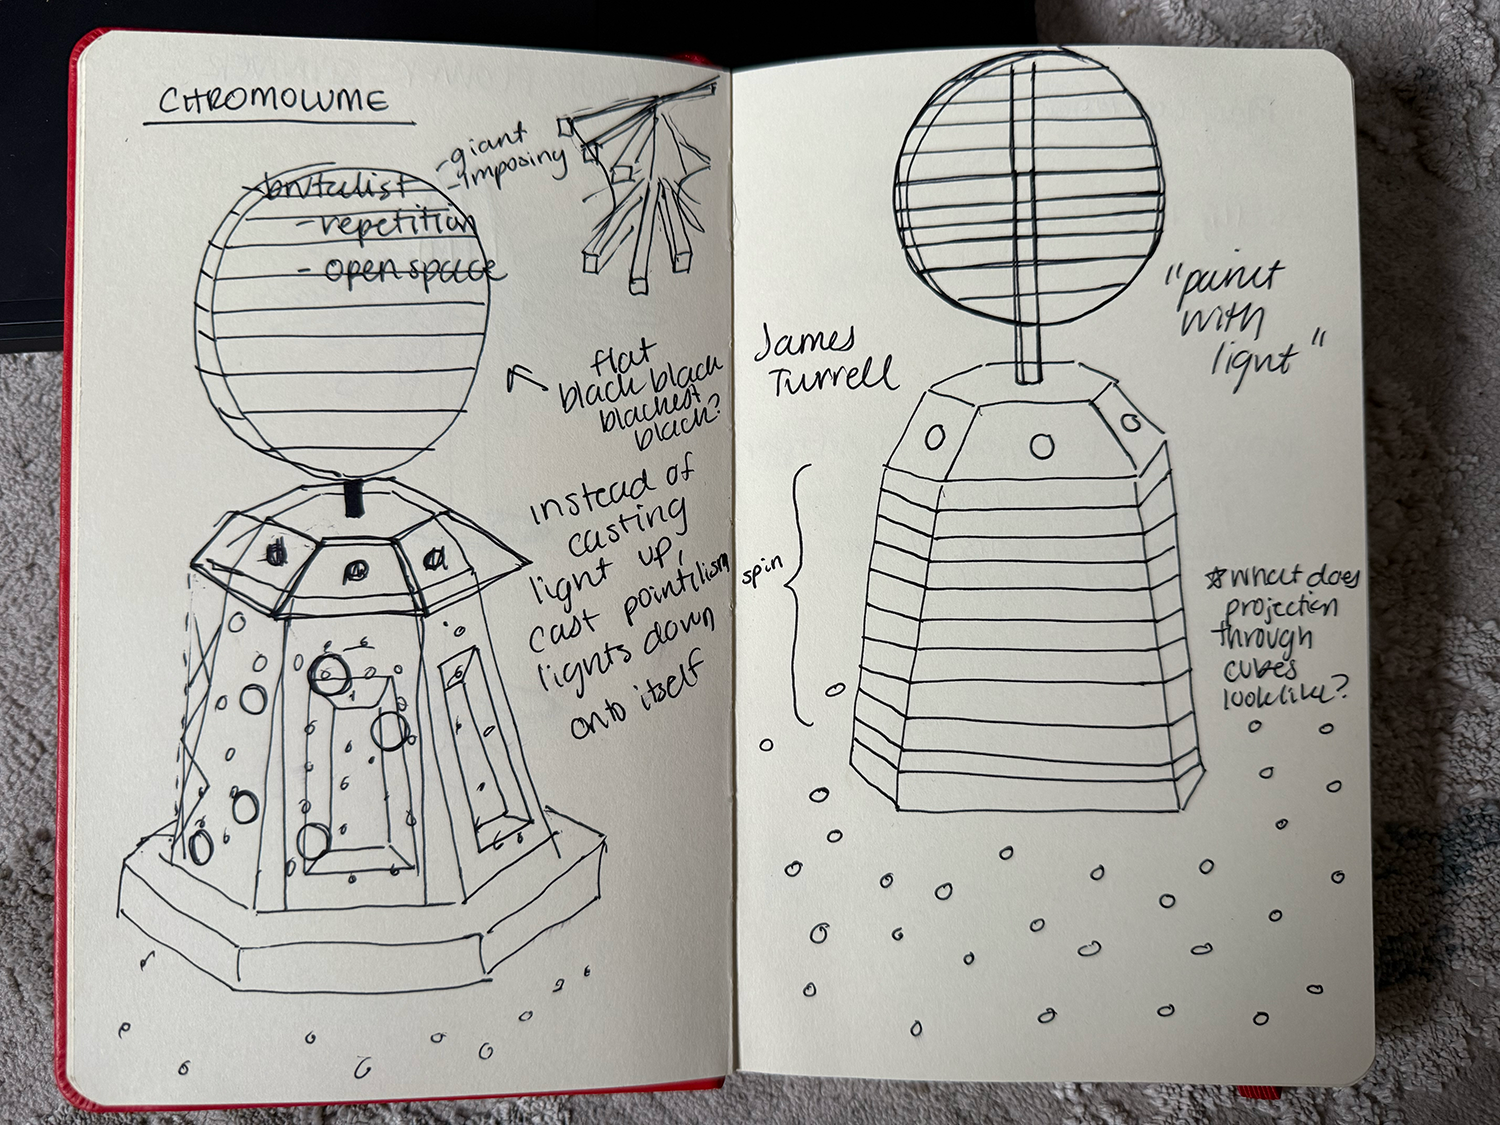 CHROMOLUME
-giant
-imposing
-brutalist
-repetition
-open space
flat
black black
blackest
black?
instead of
casting
light up,
cast pointilism
lights down
onto itself
James
Turrell
"paint
with
light"
spin
☆what does
projection
through
cubes
look like?